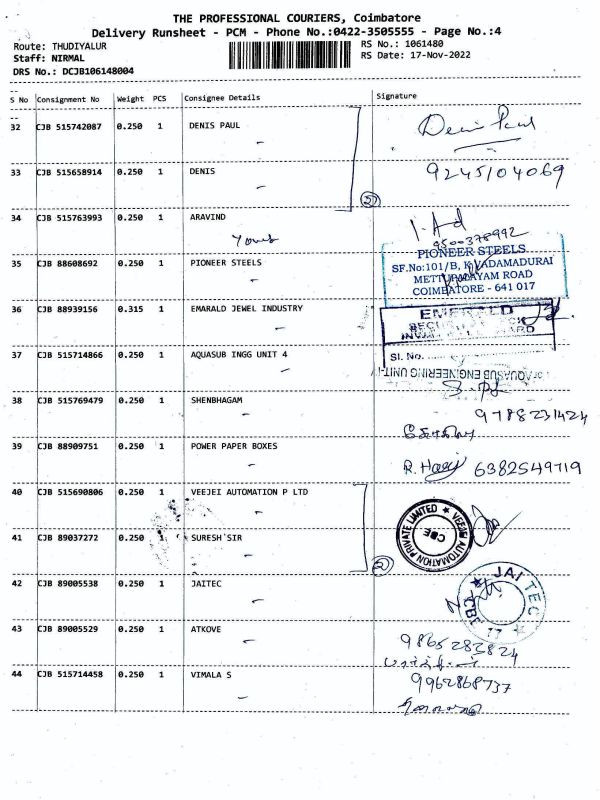 THE PROFESSIONAL COURIERS, Coimbatore
Delivery Runsheet - PCM - Phone No.:0422-3505555 - Page No.:4
Route: THUDIYALUR
RS No.: 1061480
Staff: NIRMAL
RS Date: 17-Nov-2022
DRS No.: DCJB106148004
S No Consignment No Weight PCS Consignee Details Signature
32 CJB 515742087 0.250 1 DENIS PAUL Denis Paul
33 CJB 515658914 0.250 1 DENIS 9245104069
2
34 CJB 515763993 0.250 1 ARAVIND
9500378992
35 CJB 88608692 0.250 1 PIONEER STEELS
PIONEER STEELS
SF.No:101/B, K.VADAMADURAI
METTUPALAYAM ROAD
COIMBATORE - 641 017
36 CJB 88939156 0.315 1 EMARALD JEWEL INDUSTRY
EMERALD
37 CJB 515714866 0.250 1 AQUASUB INGG UNIT 4
Sl. No.
AQUASUB ENGINEERING UNIT-IV
38 CJB 515769479 0.250 1 SHENBHAGAM
9788231424
39 CJB 88909751 0.250 1 POWER PAPER BOXES
6382549719
40 CJB 515690806 0.250 1 VEEJEI AUTOMATION P LTD
VEEJEI AUTOMATION PRIVATE LIMITED
CBE
41 CJB 89037272 0.250 1 SURESH SIR
2
42 CJB 89005538 0.250 1 JAITEC
JAI TEC
CBE
17
43 CJB 89005529 0.250 1 ATKOVE
9865283824
44 CJB 515714458 0.250 1 VIMALA S
9962868737